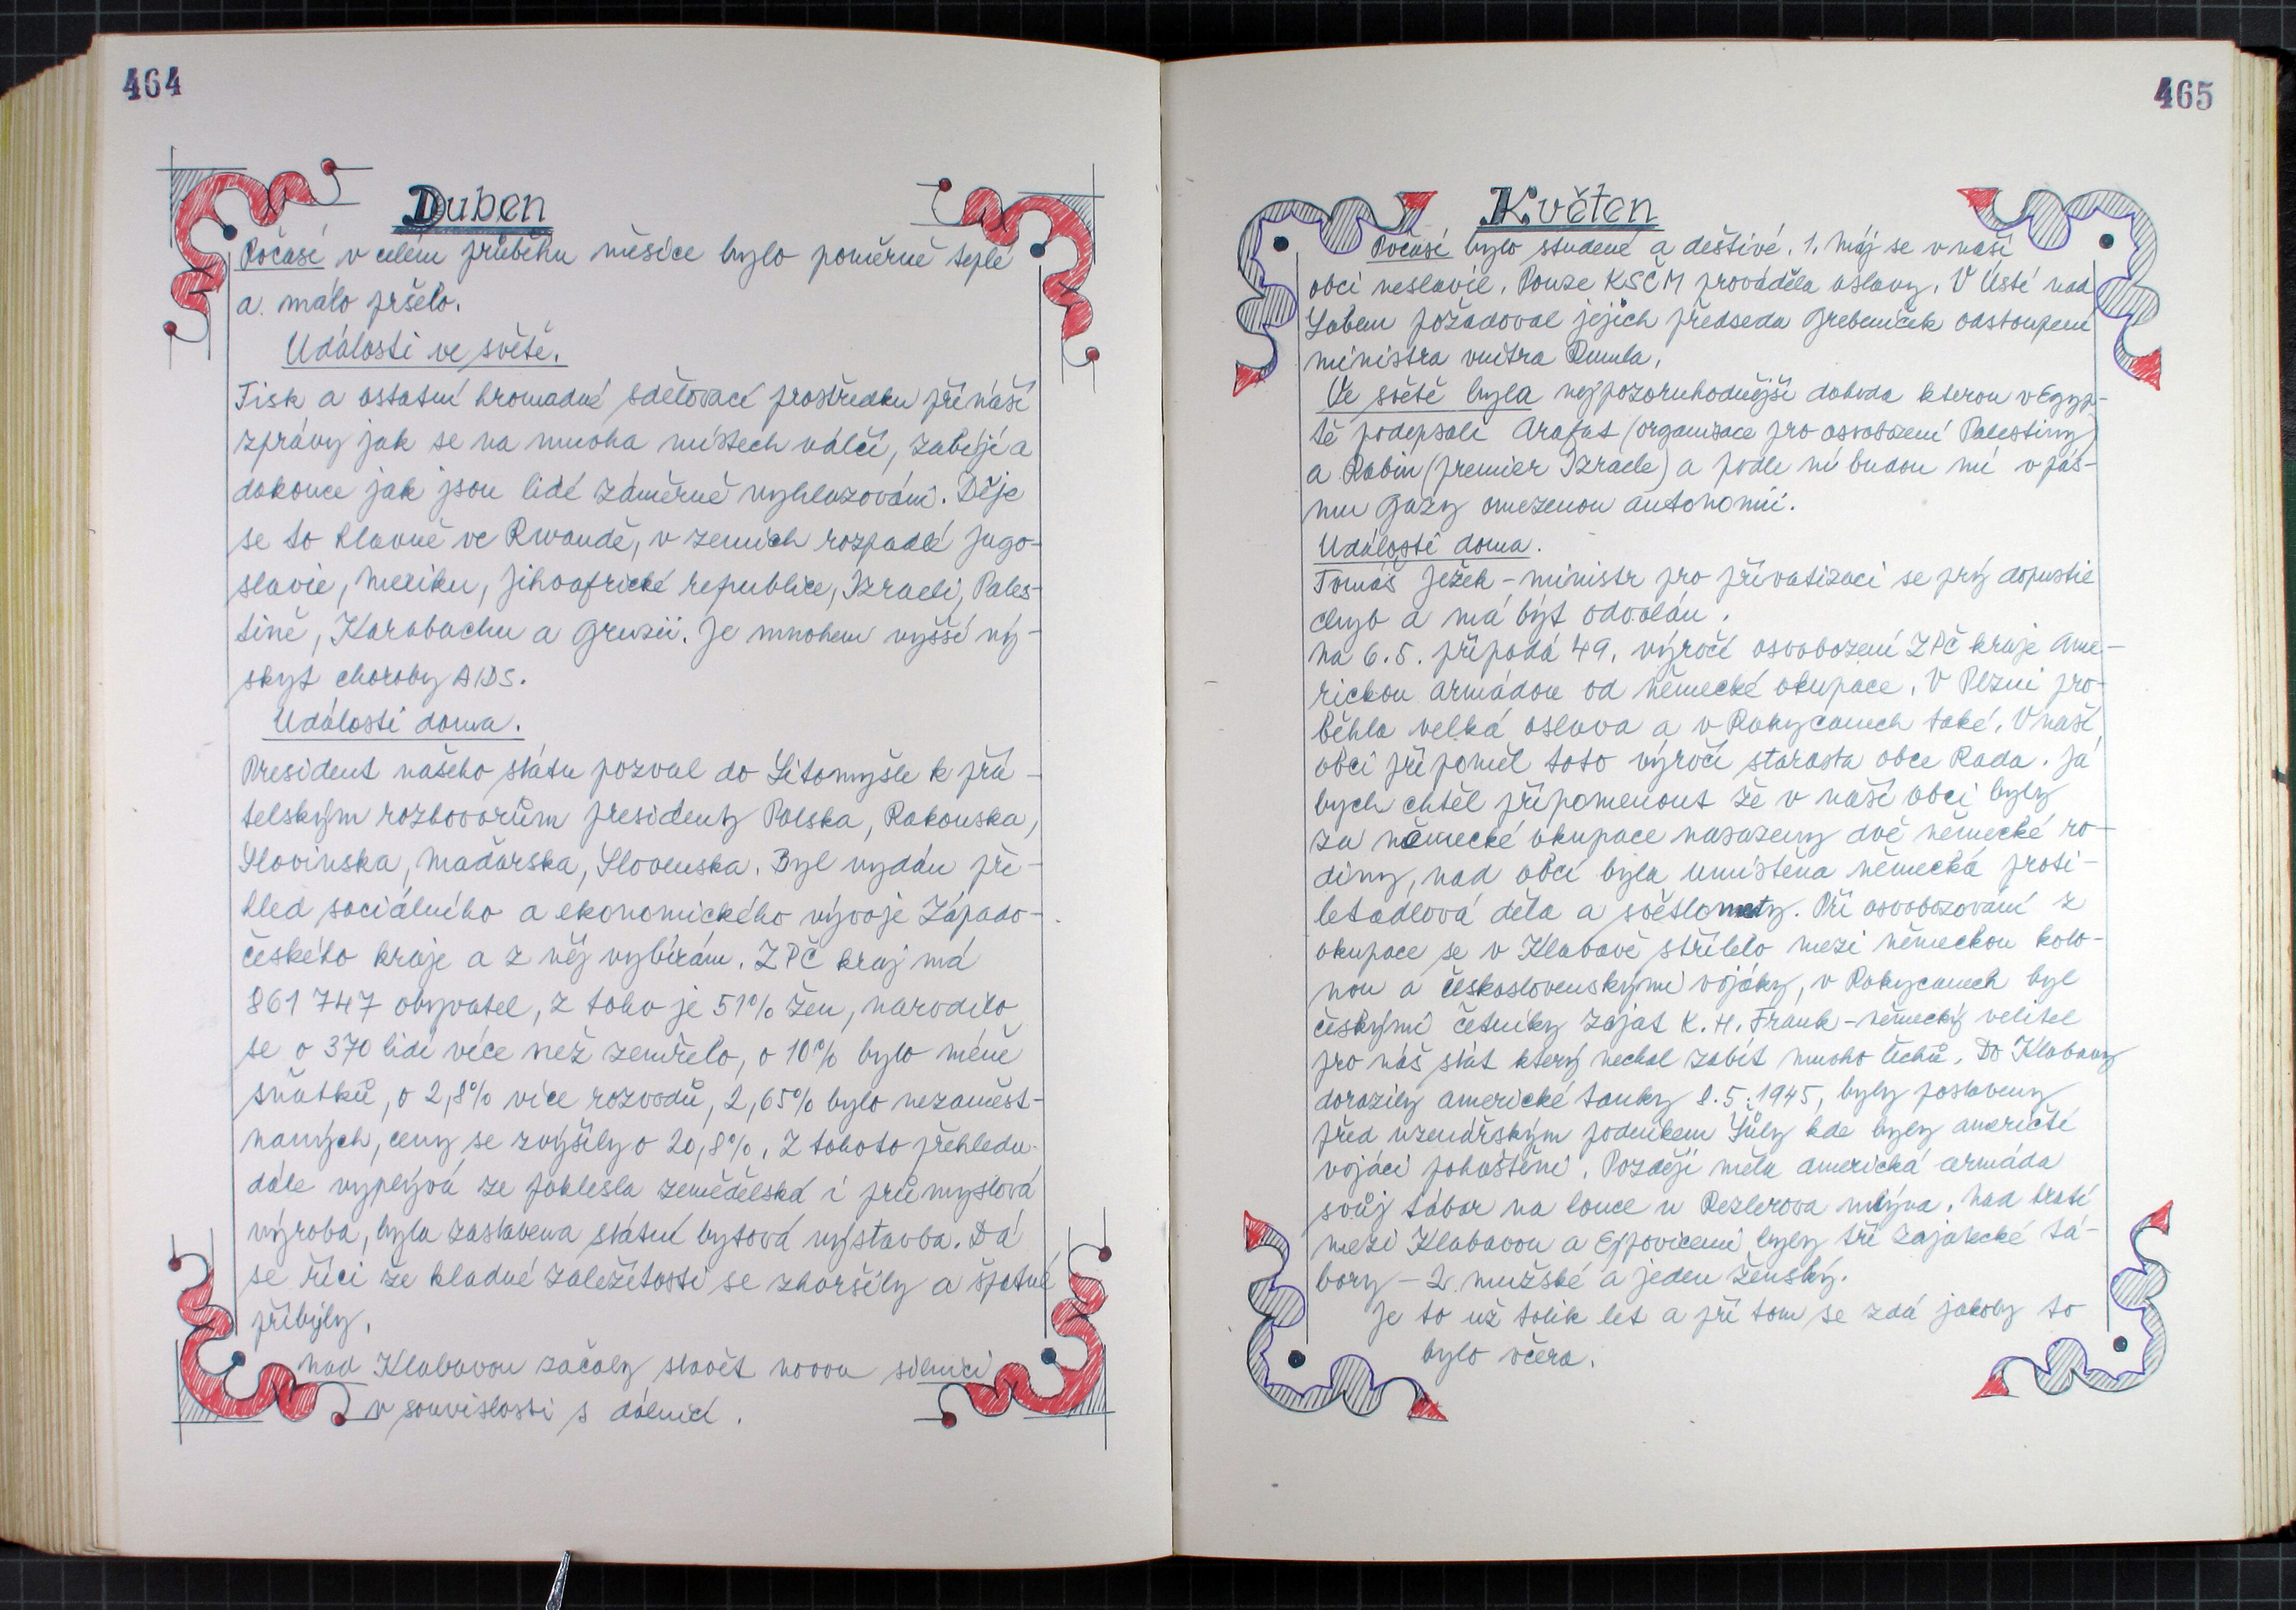 464
Duben
Počasí v celém průběhu měsíce bylo poměrně teplé
a málo pršelo.
Události ve světě.
Tisk a ostatní hromadné sdělovací prostředku přináší
zprávy jak se na mnoha místech válčí, zabíjí a
dokonce jak jsou lidé záměrně vyhlazováni. Děje
se to hlavně ve Rwandě, v zemích rozpadlé Jugo-
slavie, Mexiku, Jihoafrické republice, Izraeli, Pales-
tině, Karabachu a Gruzii. Je mnohem vyšší vý-
skyt choroby AIDS.
Události doma.
President našeho státu pozval do Litomyšle k přá-
telským rozhovorům presidenty Polska, Rakouska,
Slovinska, Maďarska, Slovenska. Byl vydán pře-
hled sociálního a ekonomického vývoje Západo-
českého kraje a z něj vybírám. ZPČ kraj má
861 747 obyvatel, z toho je 51% žen, narodilo
se o 370 lidí více než zemřelo, o 10% bylo méně
sňatků, o 2,8% více rozvodů, 2,65% bylo nezaměst-
naných, ceny se zvýšily o 20,8%. Z tohoto přehledu
dále vyplývá že poklesla zemědělská i průmyslová
výroba, byla zastavena státní bytová výstavba. Dá
se říci že kladné záležitosti se zhoršily a špatné
přibyly.
Nad Klabavou začaly stavět novou silnici
v souvislosti s dálnicí.
465
Květen
Počasí bylo studené a deštivé. 1. Máj se v naší
obci neslavil. Pouze KSČM prováděla oslavy. V Ústí nad
Labem požadoval jejich předseda Grebeníček odstoupení
ministra vnitra Rumla.
Ve světě byla nejpozoruhodnější dohoda kterou v Egyp-
tě podepsali Arafat (organizace pro osvobození Palestiny)
a Rabin (premier Izraele) a podle ní budou mí v pás-
mu Gazy omezenou autonomii.
Události doma.
Tomáš Ježek - ministr pro privatizaci se prý dopustil
chyb a má být odvolán.
Na 6.5. připadá 49. výročí osvobození ZPČ kraje Ame-
rickou armádou od německé okupace. V Plzni pro-
běhla velká oslava a v Rokycanech také. V naší
obci připoměl toto výročí starosta obce Rada. Já
bych chtěl připomenout že v naší obci byly
za německé okupace nasazeny dvě německé ro-
diny, nad obcí byla umístěna německá proti-
letadlová děla a světlomety. Při osvobozování z
okupace se v Klabavě střílelo mezi německou kolo-
nou a československými vojáky, v Rokycanech byl
českými četníky zajat K. H. Frank - německý velitel
pro náš stát který nechal zabít mnoho Čechů. Do Klabavy
dorazily americké tanky 8.5.1945, byly postaveny
před uzenářským podnikem Šůly kde byly američtí
vojáci pohoštěni. Později měla americká armáda
svůj tábor na louce u Rezlerova mlýna. Nad tratí
mezi Klabavou a Ejpovicemi byly tři zajatecké tá-
bory - 2 mužské a jeden ženský.
Je to už tolik let a při tom se zdá jakoby to
bylo včera.